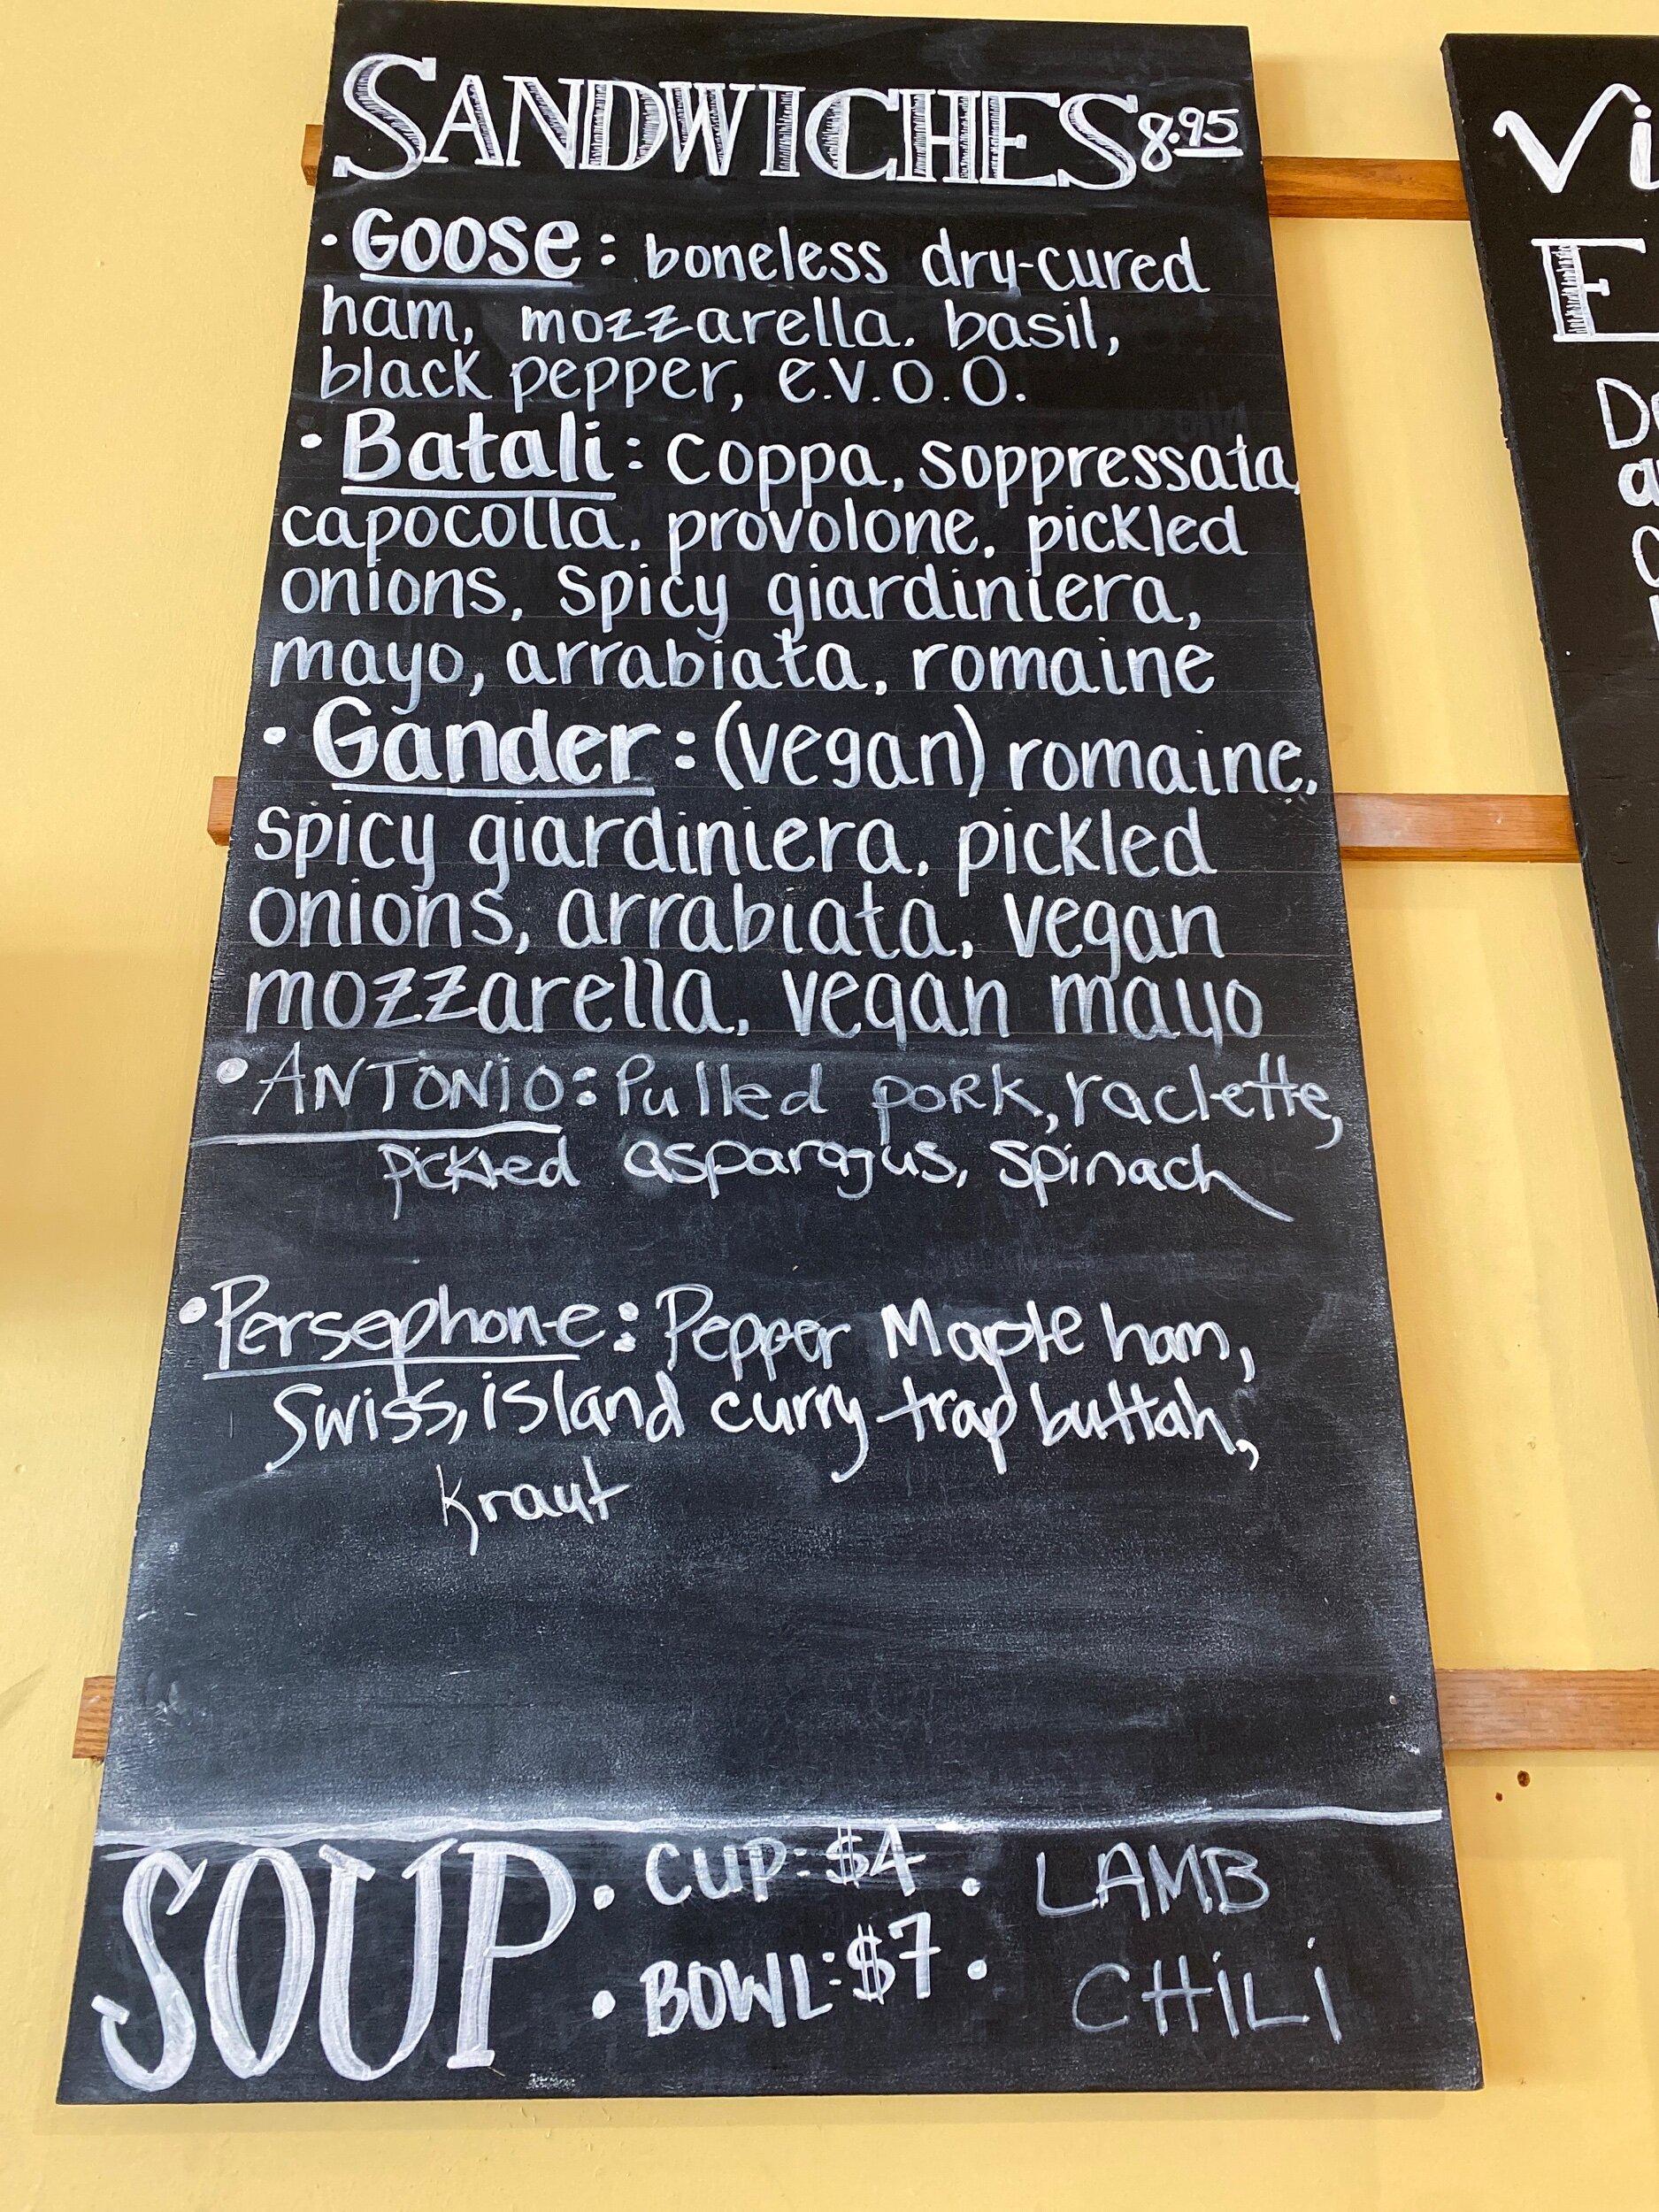 SANDWICHES 8.95
• Goose: boneless dry-cured
ham, mozzarella. basil,
black pepper, e.v.o.o.
• Batali: coppa, soppressata,
capocolla, provolone, pickled
onions, spicy giardiniera,
mayo, arrabiata, romaine
• Gander: (vegan) romaine,
spicy giardiniera, pickled
onions, arrabiata, vegan
mozzarella, vegan mayo
• ANTONIO: Pulled pork, raclette,
pickled asparagus, spinach
• Persephone: Pepper Maple ham,
Swiss, island curry trap buttah,
kraut
SOUP • CUP: $4 • LAMB
• BOWL: $7 • CHiLi
Vi
E